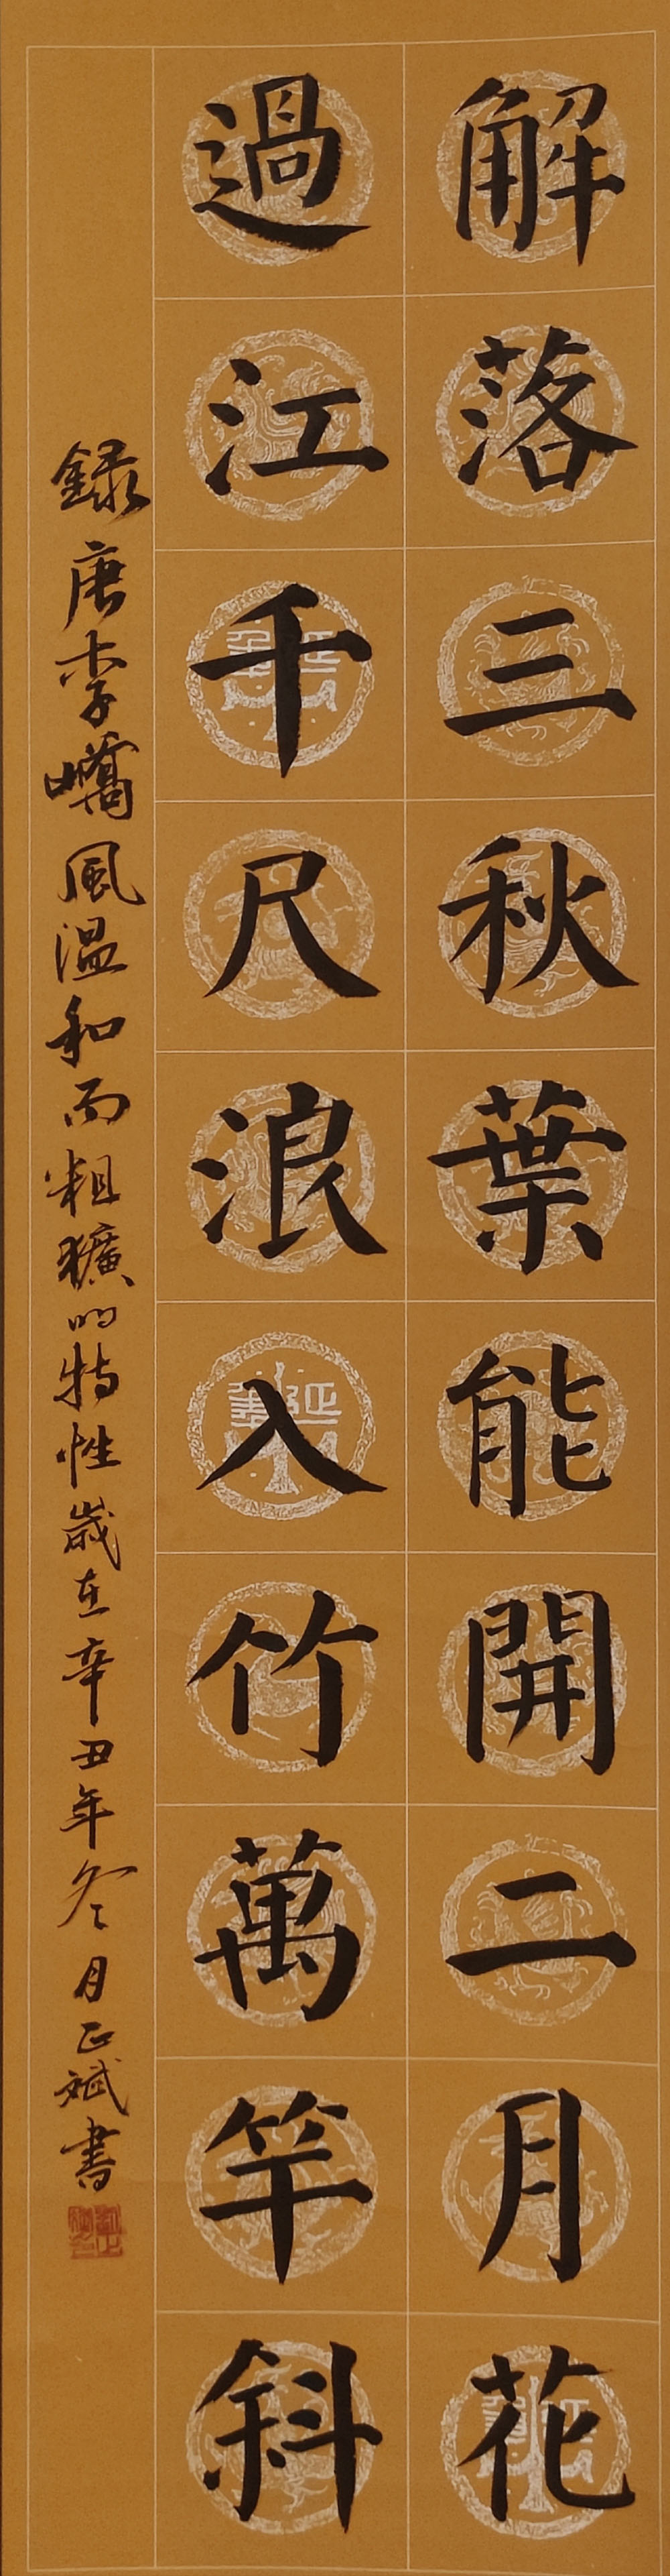 解落三秋葉能開二月花
過江千尺浪入竹萬竿斜
録唐李嶠風温和而粗獷的特性歲在辛丑年冬月正斌書